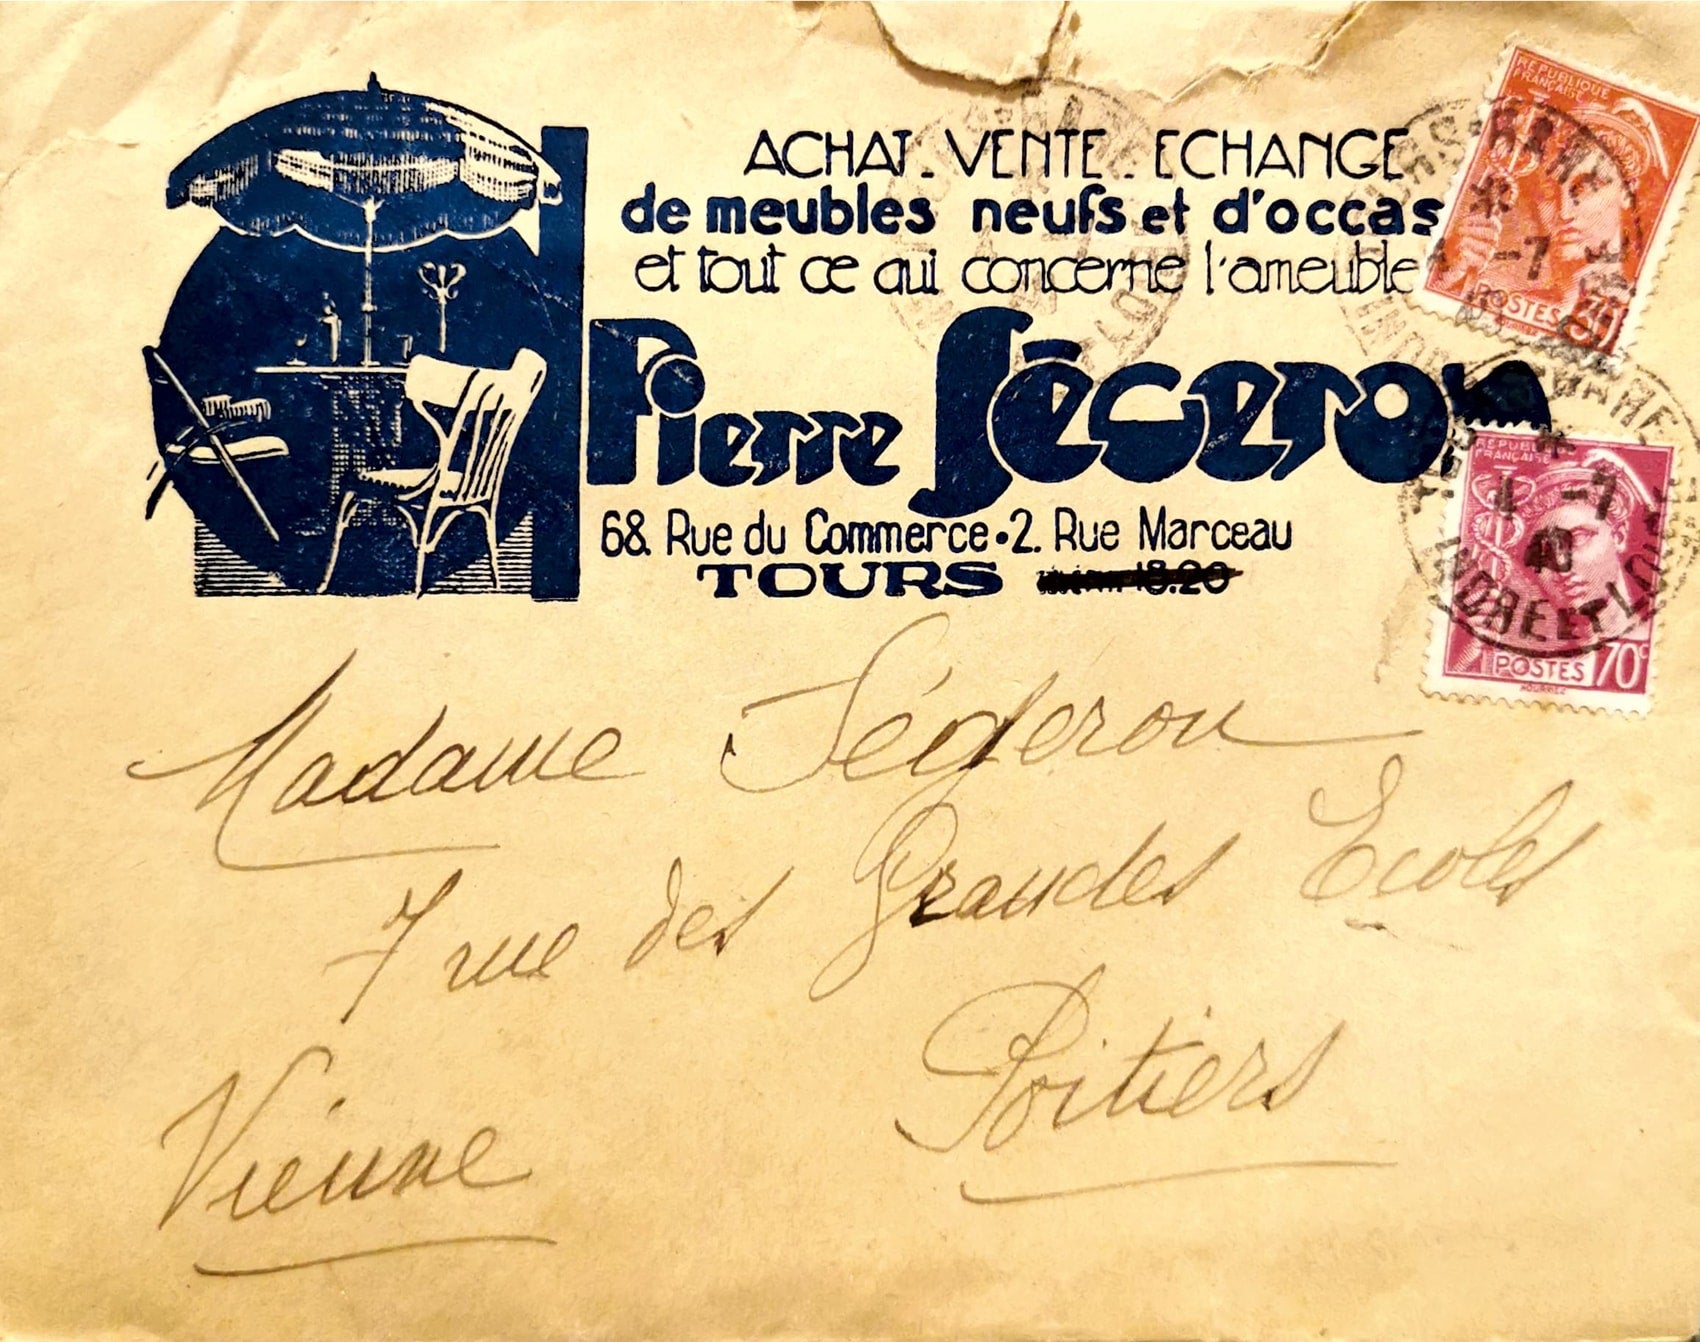 ACHAT - VENTE - ECHANGE
de meubles neufs et d'occas
et tout ce qui concerne l'ameuble
Pierre Ségeron
68. Rue du Commerce • 2. Rue Marceau
TOURS 18.20
REPUBLIQUE
FRANÇAISE
POSTES
REPUBLI
FRANÇAISE
POSTES 70c
-7
1 -7
40
INDRE ET LOIRE
Madame Ségeron
7 rue des Grandes Ecoles
Poitiers
Vienne